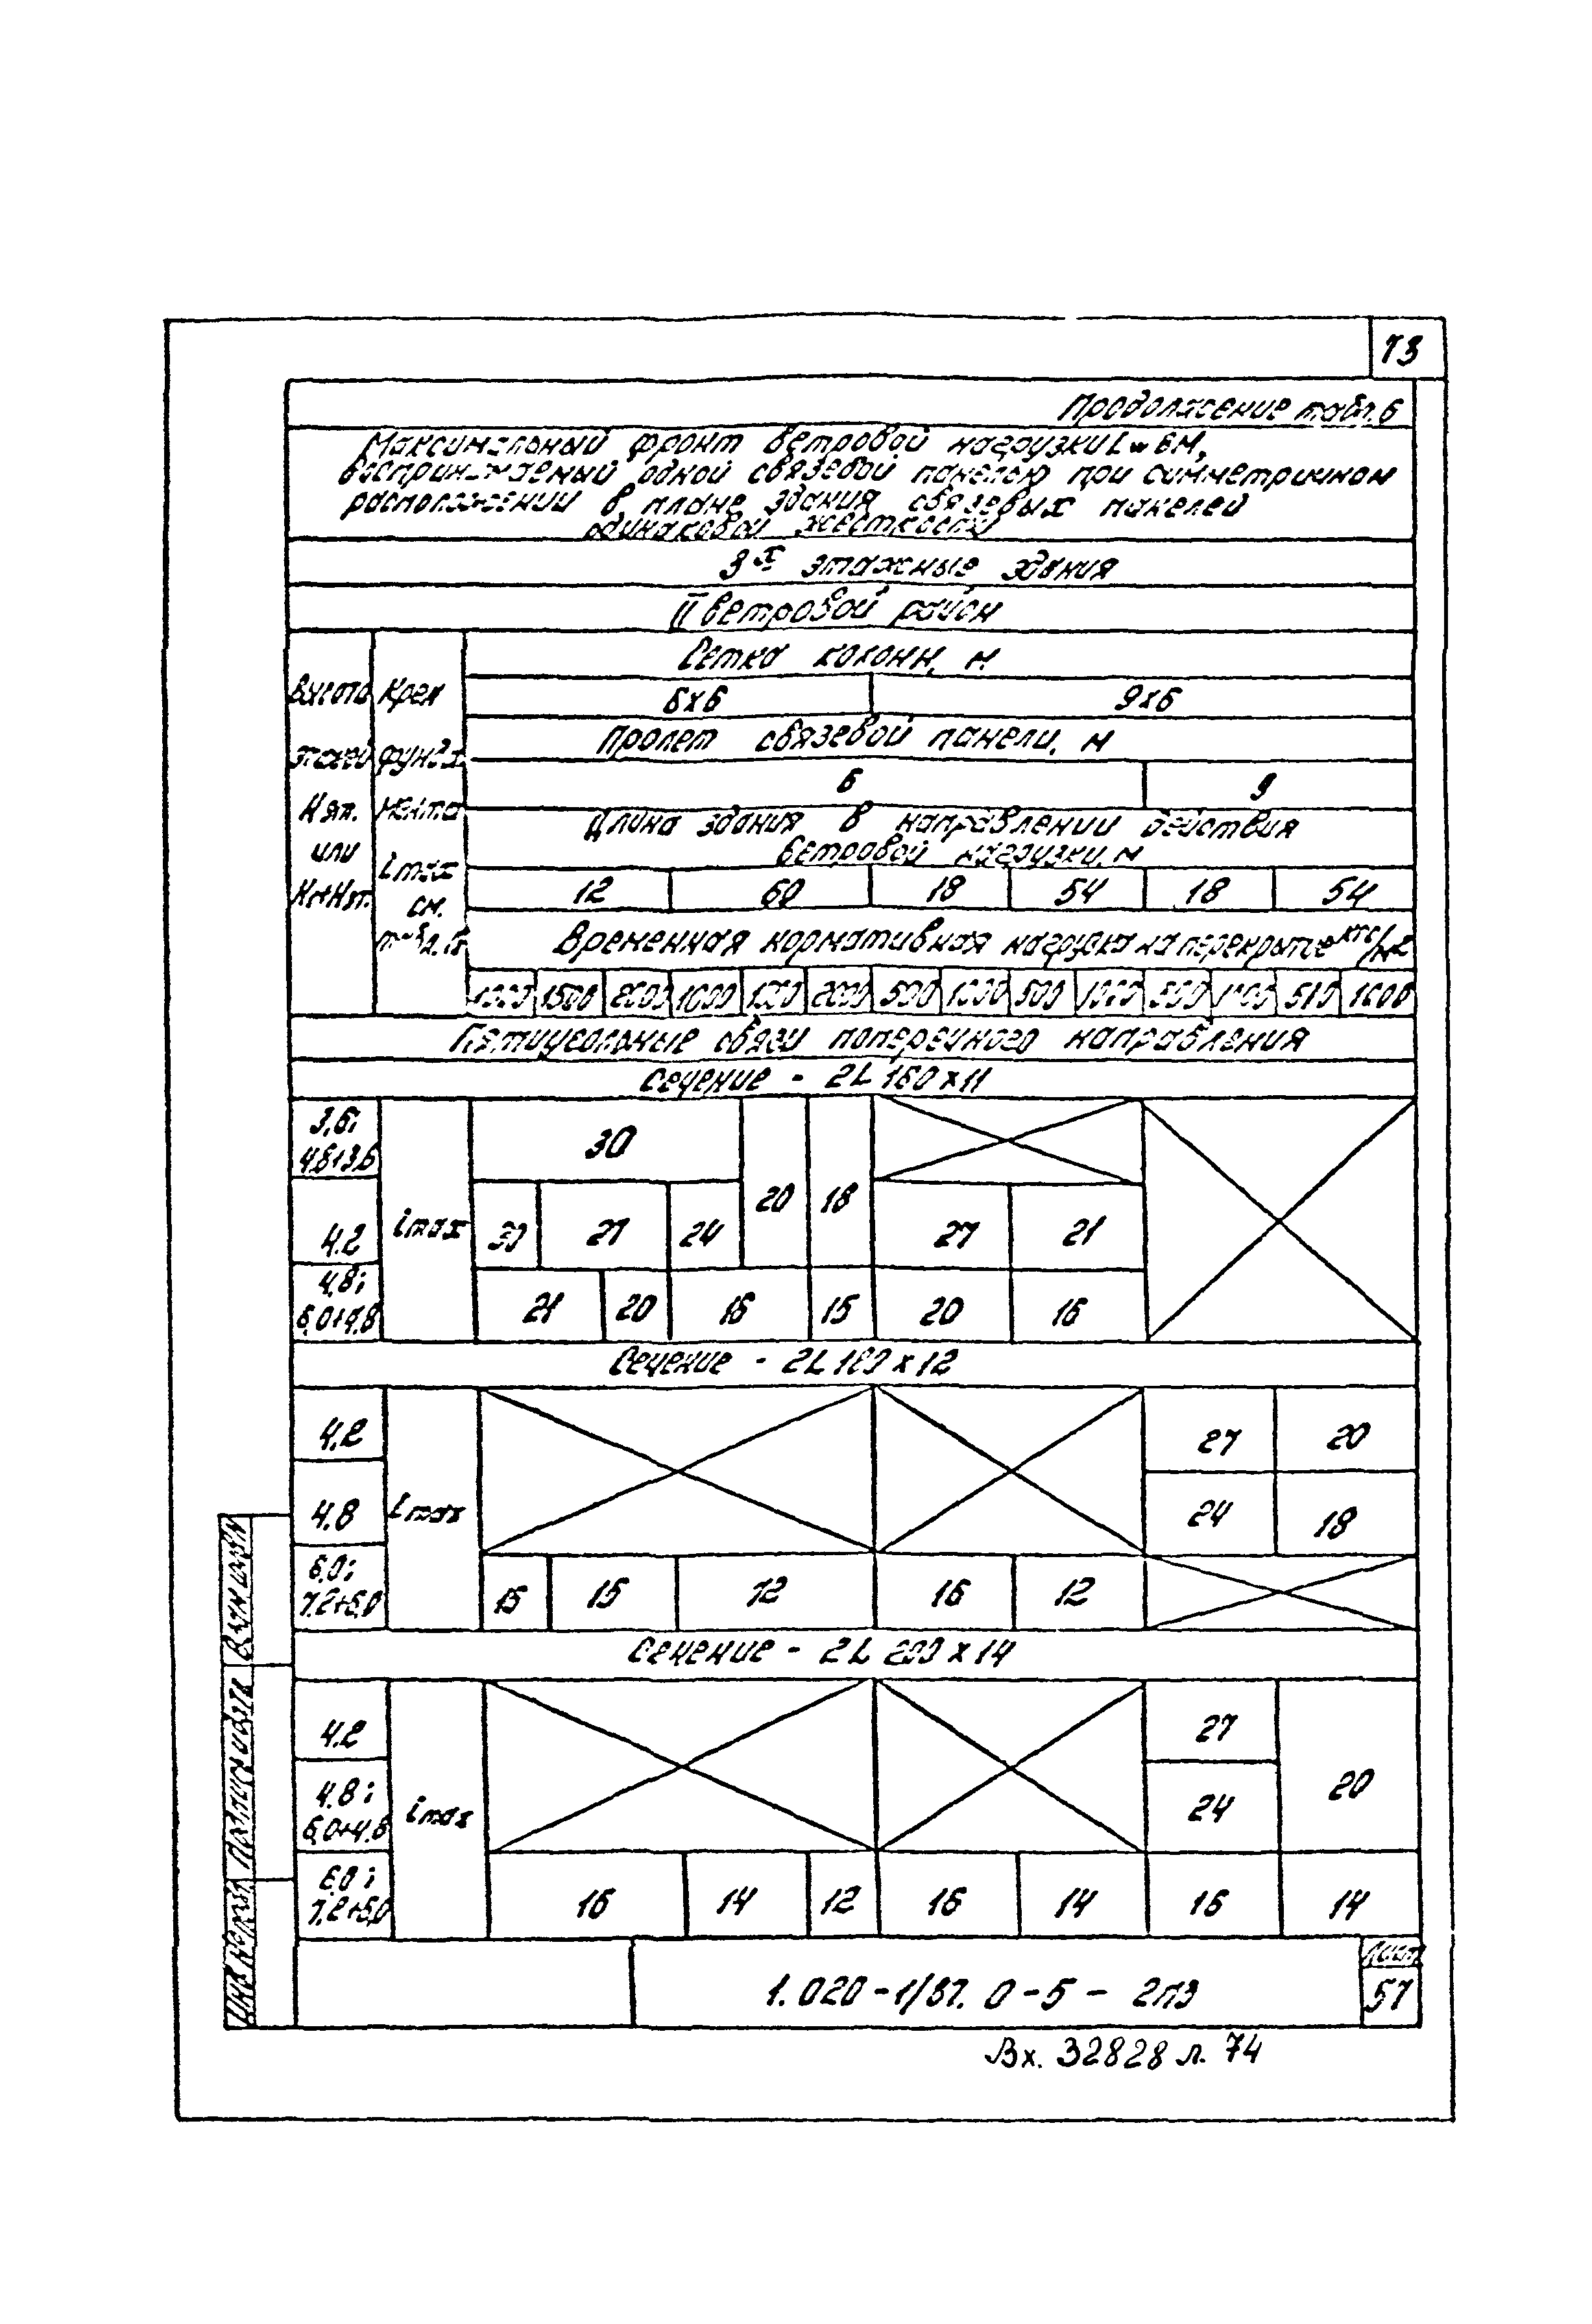 73
Продолжение табл. 6
Максимальный фронт ветровой нагрузки Lw в м,
воспринимаемый одной связевой панелью при симметричном
расположении в плане здания связевых панелей
одинаковой жесткости
3х этажные здания
II ветровой район
Высота этажей Нэт. или Нн+Нэт.
Крен фундамента imax см. табл.
Сетка колонн, м
6х6 9х6
Пролет связевой панели, м
6 9
Длина здания в направлении действия
ветровой нагрузки, м
12 60 18 54 18 54
Временная нормативная нагрузка на перекрытие кгс/м2
1000 1500 2000 1000 1500 2000 500 1000 500 1000 500 1000 500 1000
Пятиугольные связи поперечного направления
Сечение - 2L 160 х 11
3,6;
4,8+3,6
30
20 18
4.2 imax 30 27 24 27 21
4,8;
6,0+4,8
21 20 16 15 20 16
Сечение - 2L 180 х 12
4.2 27 20
4.8 imax 24 18
6,0;
7,2+6,0
16 15 12 16 12
Сечение - 2L 200 х 14
4.2 27
4.8;
6,0+4.8
imax 24 20
6.0;
7,2+6,0
16 14 12 16 14 16 14
1. 020 - 1/87. 0 - 5 - 2ПЗ
Лист
57
Инв. № подл. Подпись и дата Взам. инв. №
Вх. 32828 л. 74